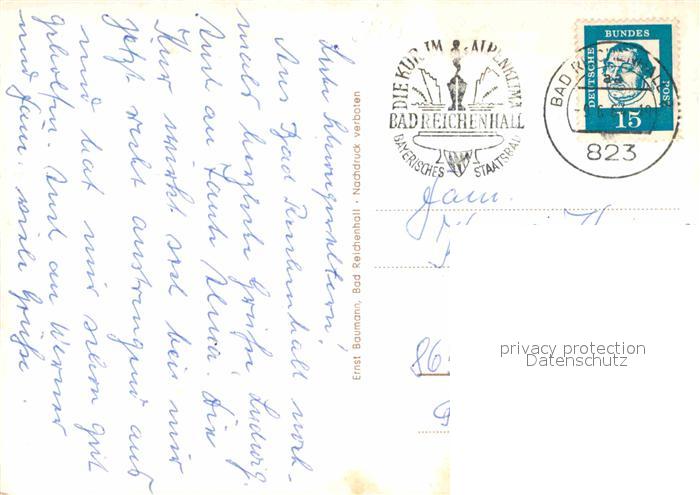 Liebe Schwiegereltern!
Aus Bad Reichenhall noch-
mals herzliche Grüße Ludwig.
Auch an Tante Anna. Die
Kur wirkt sich bei mir
jetzt recht anstrengend aus
und hat mir schon gut
geholfen. Auch an Werner
und Fam. viele Grüße.
Ernst Baumann, Bad Reichenhall · Nachdruck verboten
DIE KUR IM ALPENKLIMA
BAD REICHENHALL
BAYERISCHES STAATSBAD
BAD REICHENHALL
823
DEUTSCHE
BUNDES
POST
15
Fam.
86-
privacy protection
Datenschutz